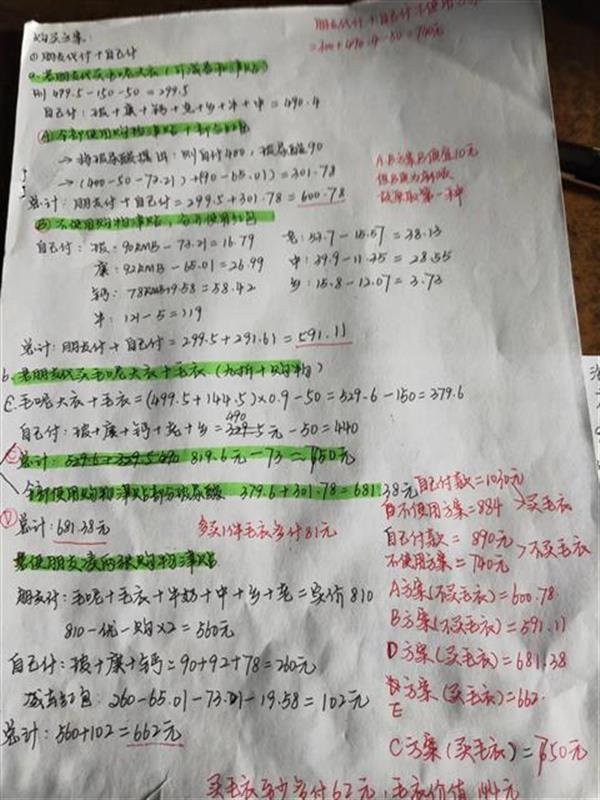 购买方案:
①朋友代付+自己付
朋友代付+自己付不使用
=300+490.4-50=740元
a.若朋友代买毛呢大衣
则 499.5-150-50=299.5
自己付: 玻+康+钙+老+乡+牛+中=490.4
Ⓐ全部使用购物津贴+部分红包
→将玻尿酸摘出: 则自付400, 玻尿酸90
→(400-50-73.21)+(90-65.01)=301.78
总计: 朋友付+自己付=299.5+301.78=600.78
A.B方案B便宜10元
故采取第一种
Ⓑ不使用购物津贴,
自己付: 玻: 90RMB-73.21=16.79
老: 53.7-15.57=38.13
康: 92RMB-65.01=26.99
中: 39.9-11.35=28.55
钙: 78RMB-19.58=58.42
乡: 15.8-12.07=3.73
牛: 121-5=119
总计: 朋友付+自己付=299.5+291.61=591.11
b.若朋友代买毛呢大衣+毛衣(九折+购物)
毛呢大衣+毛衣=(499.5+144.5)×0.9-50=529.6-150=379.6
490
自己付: 玻+康+钙+老+乡=329.5元-50=440
总计: 819.6元-73=750元
全部使用购物津贴部分玻尿酸 379.6+301.78=681.38元
Ⓓ总计: 681.38元
多买1件毛衣多付81元
若使朋友凑两张购物津贴
朋友付: 毛呢+毛衣+牛奶+中+乡+老=实价810
810-优-购×2=560元
自己付: 玻+康+钙=90+92+78=260元
减去红包: 260-65.01-73.21-19.58=102元
总计: 560+102=662元
自己付款=1030元
不使用方案=884 >买毛衣
自己付款=890元
不使用方案=740元 >不买毛衣
A方案(不买毛衣)=600.78
B方案(不买毛衣)=591.11
D方案(买毛衣)=681.38
E方案(买毛衣)=662
C方案(买毛衣)=750元
买毛衣至少多付62元, 毛衣价值144元